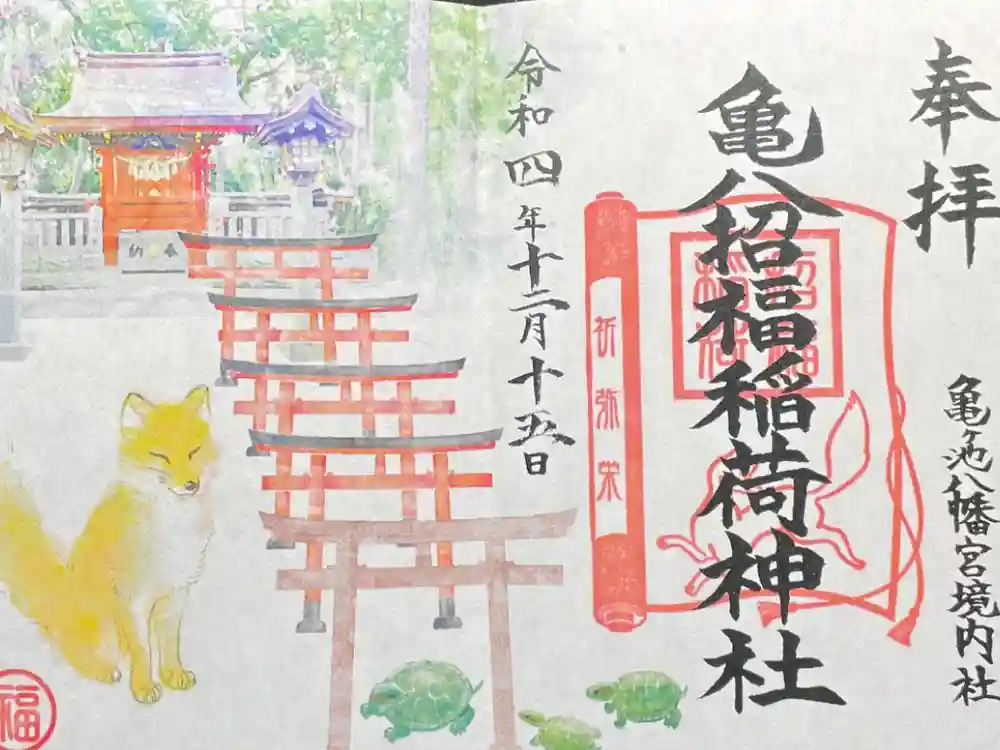 奉拝
亀八招福稲荷神社
亀ヶ池八幡宮境内社
招福
稲荷
祈弥栄
令和四年十二月十五日
奉納
福